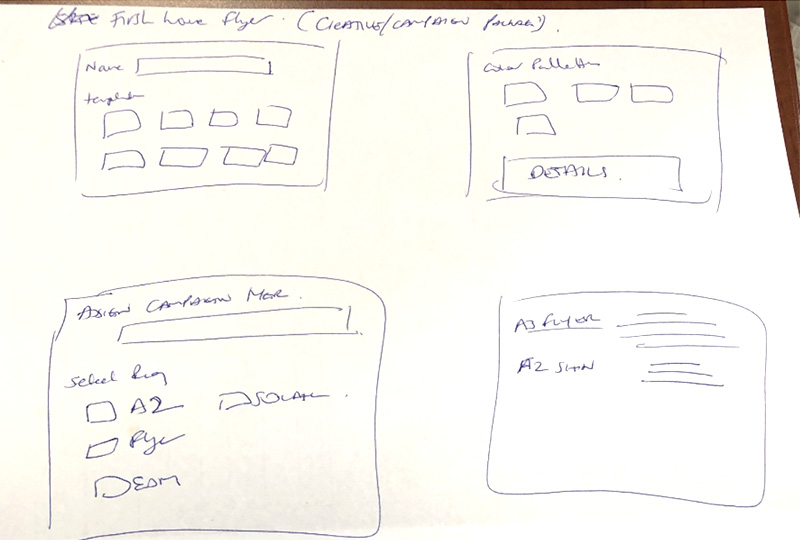 First home flyer. (CREATIVE/CAMPAIGN PACKAGE)
Name
templates
Color Pallette
DETAILS.
ASSIGN CAMPAIGN MGR.
Select Req
A2
SOCIAL.
flyer
EDM
A3 FLYER
A2 SIGN